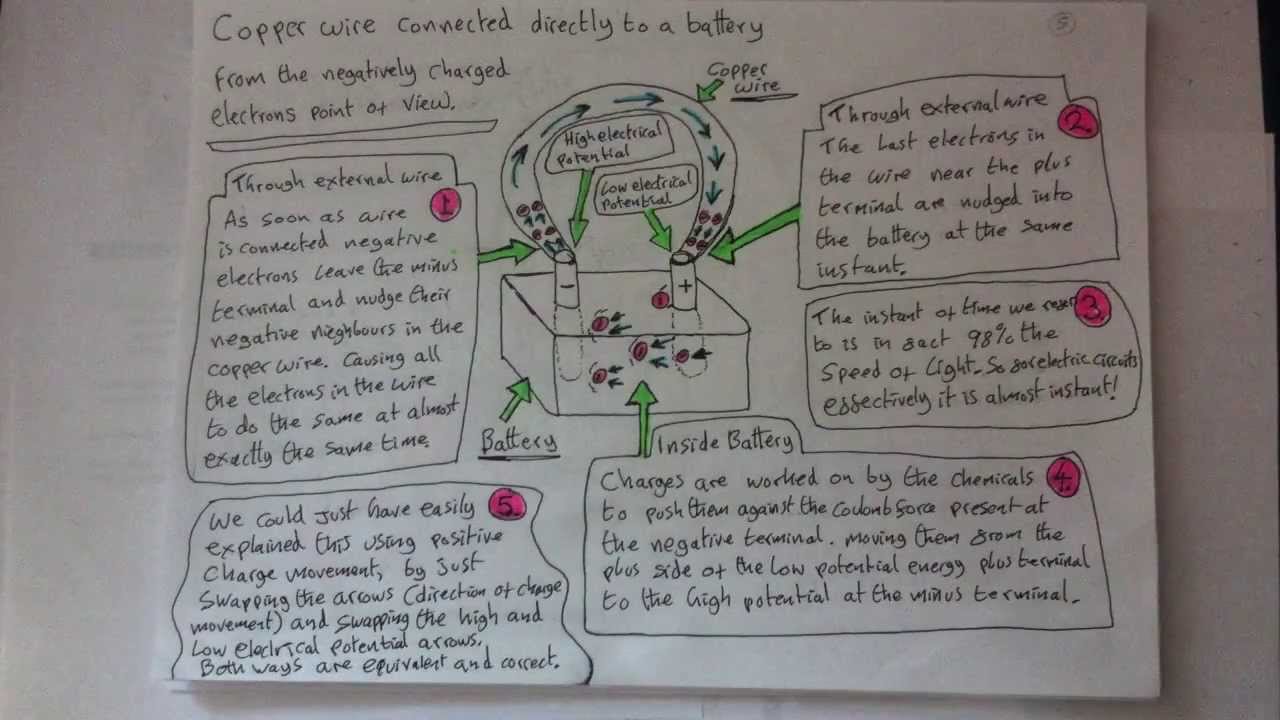 Copper wire connected directly to a battery
5
from the negatively charged
electrons point of view.
Copper
wire
High electrical
potential
Low electrical
potential
Through external wire
1
As soon as wire
is connected negative
electrons leave the minus
terminal and nudge their
negative nieghbours in the
copper wire. Causing all
the electrons in the wire
to do the same at almost
exactly the same time.
2.
Through external wire
The last electrons in
the wire near the plus
terminal are nudged into
the battery at the same
instant.
3
The instant of time we
to is in fact 98% the
Speed of light. So for electric circuits
effectively it is almost instant!
-
+
Battery
Inside Battery
4.
Charges are worked on by the chemicals
to push them against the Coulomb force present at
the negative terminal. moving them from the
plus side of the low potential energy plus terminal
to the high potential at the minus terminal.
5.
We could just have easily
explained this using positive
charge movement, by just
swapping the arrows (direction of charge
movement) and swapping the high and
low electrical potential arrows.
Both ways are equivalent and correct.